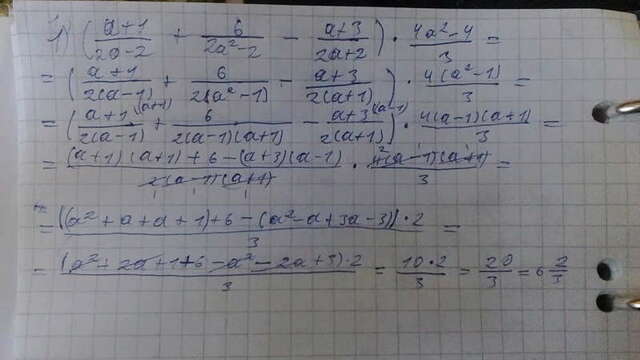 1) ((a+1)/(2a-2) + 6/(2a²-2) - (a+3)/(2a+2)) · (4a²-4)/3 =
= ((a+1)/(2(a-1)) + 6/(2(a²-1)) - (a+3)/(2(a+1))) · 4(a²-1)/3 =
= ((a+1)^(a+1)/(2(a-1)) + 6/(2(a-1)(a+1)) - (a+3)^(a-1)/(2(a+1))) · 4(a-1)(a+1)/3 =
= ((a+1)(a+1)+6-(a+3)(a-1))/(2(a-1)(a+1)) · 4(a-1)(a+1)/3 =
= ((a²+a+a+1)+6-(a²-a+3a-3))·2/3 =
= (a²+2a+1+6-a²-2a+3)·2/3 = 10·2/3 = 20/3 = 6 2/3